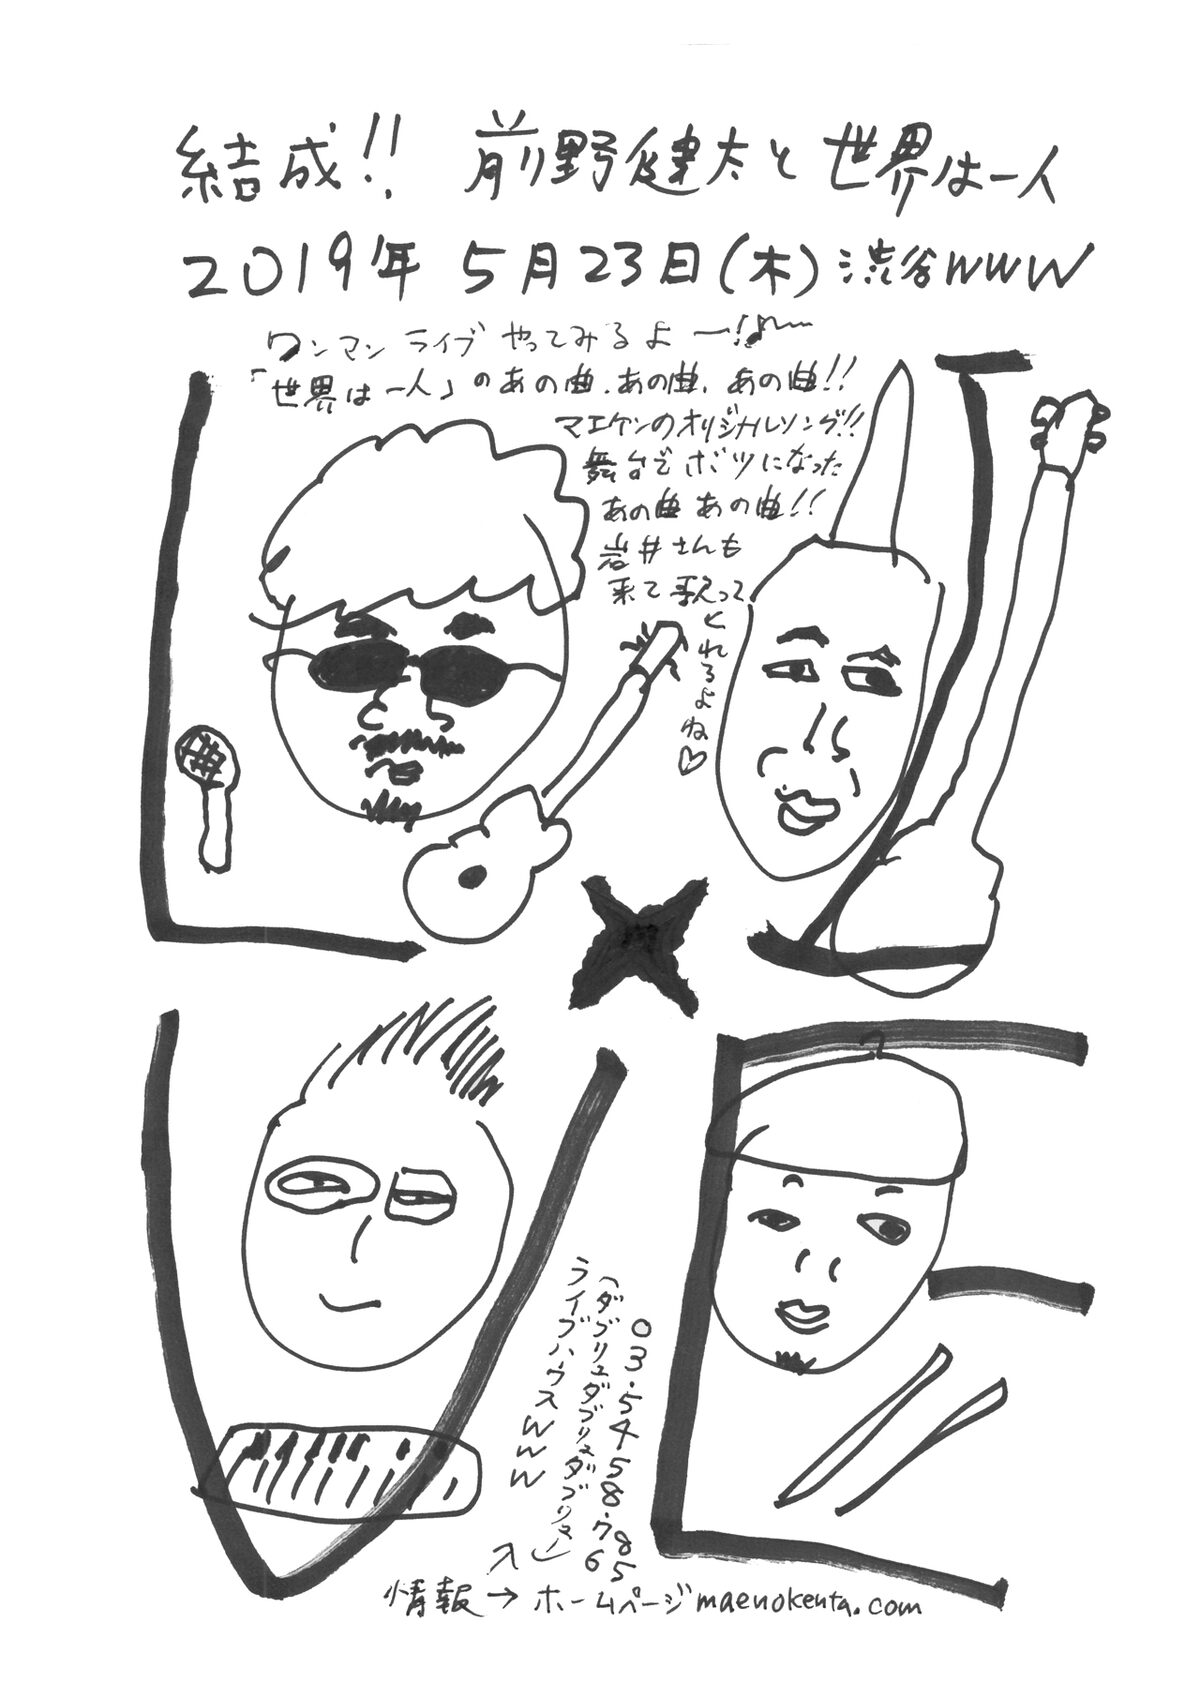 結成!! 前野健太と世界は一人
2019年 5月23日(木) 渋谷WWW
ワンマン ライブ やってみるよ〜!♪〜
「世界は一人」のあの曲.あの曲.あの曲!!
マエケンのオリジナルソング!!
舞台でボツになった
あの曲 あの曲!!
岩井さんも
来て歌って
くれるよね♡
LIVE
03.5458.7685
(ダブリュダブリュダブリュー)
ライブハウスWWW
へ
情報→ホームページmaenokenta.com